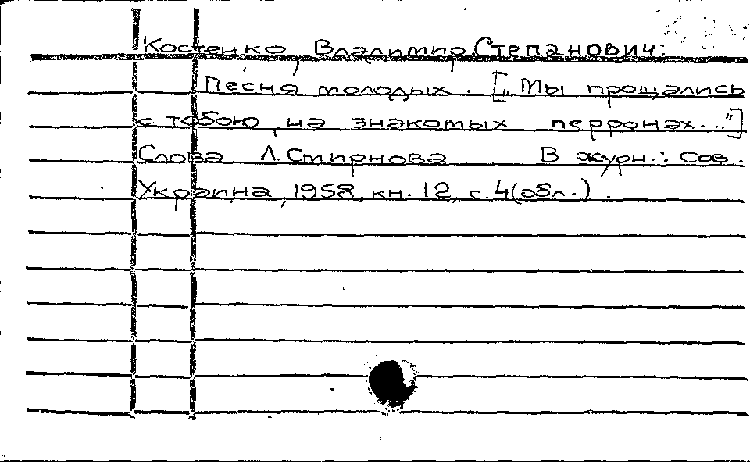 Костенко, Владимир Степанович:
Песня молодых. [„Мы прощались
с тобою на знакомых перронах..."]
Слова Л. Смирнова В журн.: Сов.
Украина, 1958, кн. 12, с. 4(обл.).